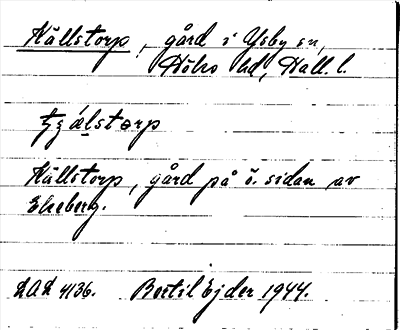 Källstorp, gård i Ysby sn,
Höks hd, Hall. l.
tzälstorp
Källstorp, gård på ö. sidan av
Ekeberg.
LAL 4136. Bertil Ejder 1944.